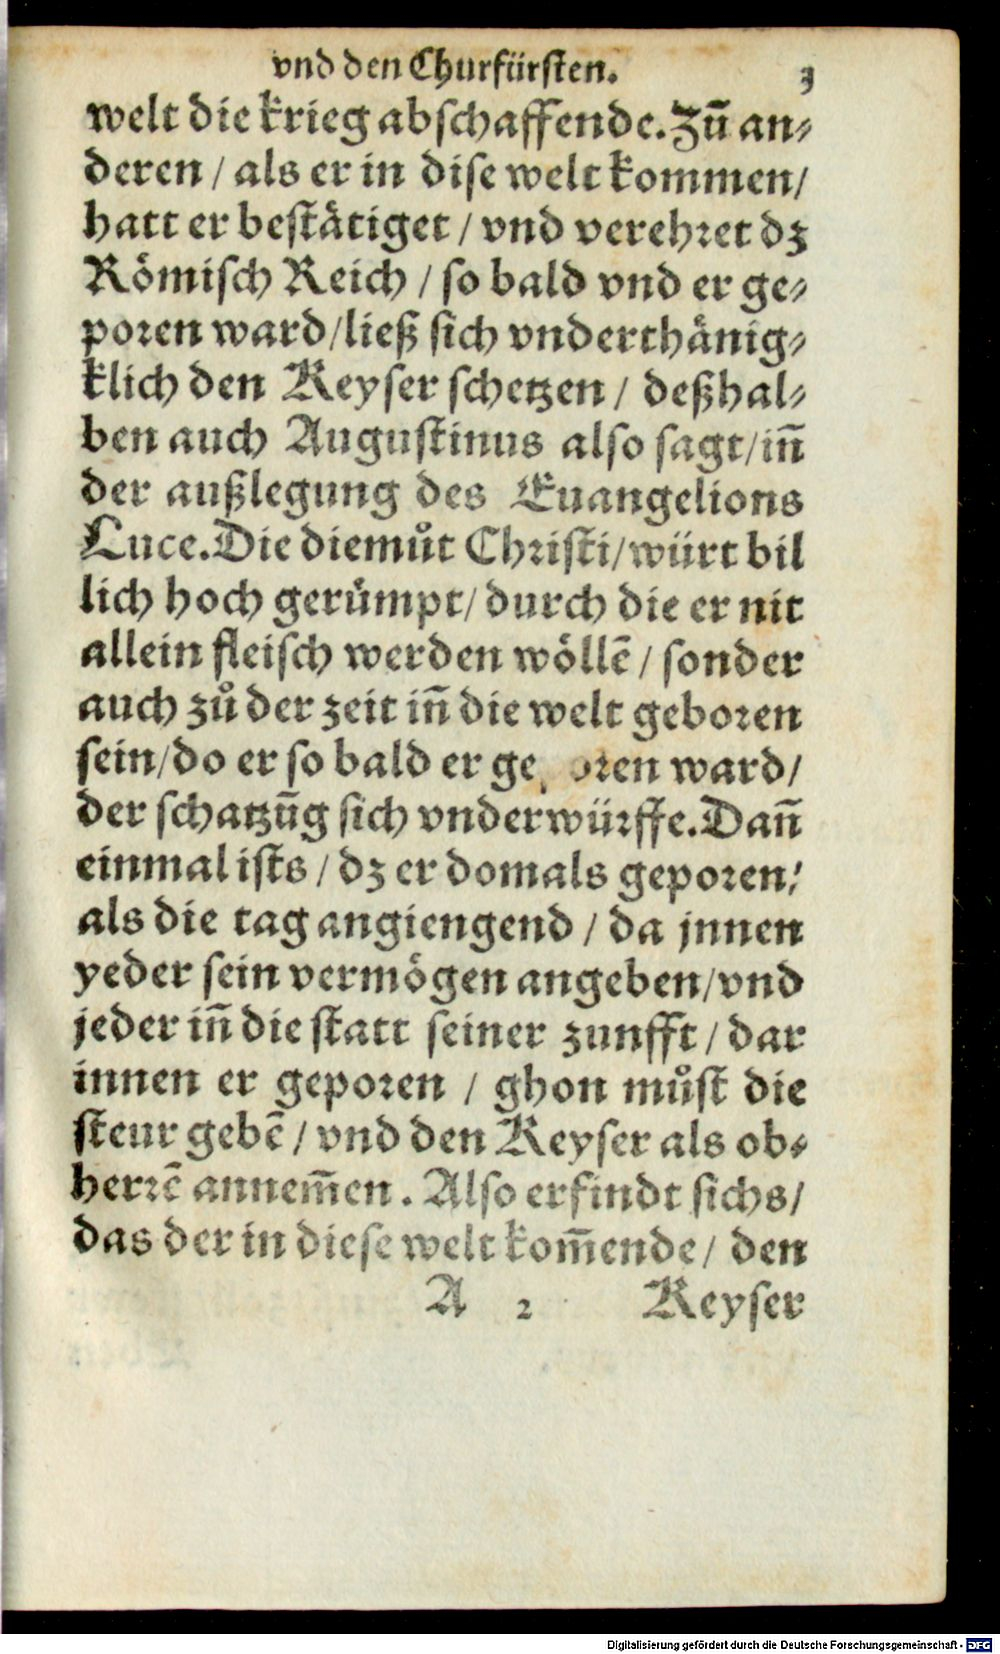 vnd den Churfürſten. 3
welt die krieg abſchaffende. Zū an⸗
deren / als er in diſe welt kommen /
hatt er beſtätiget / vnd verehꝛet dz
Römiſch Reich / ſo bald vnd er ge⸗
poꝛen ward / ließ ſich vnderthänig⸗
klich den Keyſer ſchetzen / deßhal⸗
ben auch Auguſtinus alſo ſagt / iñ
der außlegung des Euangelions
Luce. Die diemůt Chꝛiſti / würt bil
lich hoch gerůmpt / durch die er nit
allein fleiſch werden wöllē / ſonder
auch zů der zeit iñ die welt geboꝛen
ſein / do er ſo bald er ge oꝛen ward /
der ſchatzūg ſich vnderwüꝛffe. Dañ
einmal iſts / dz er domals gepoꝛen /
als die tag angiengend / da jnnen
yeder ſein vermögen angeben / vnd
jeder iñ die ſtatt ſeiner zunfft / dar
innen er gepoꝛen / ghon můſt die
ſteur gebē / vnd den Keyſer als ob⸗
herꝛē annem̄en. Alſo erfindt ſichs /
das der in dieſe welt kom̄ende / den
A 2 Keyſer
Digitalisierung gefördert durch die Deutsche Forschungsgemeinschaft - DFG